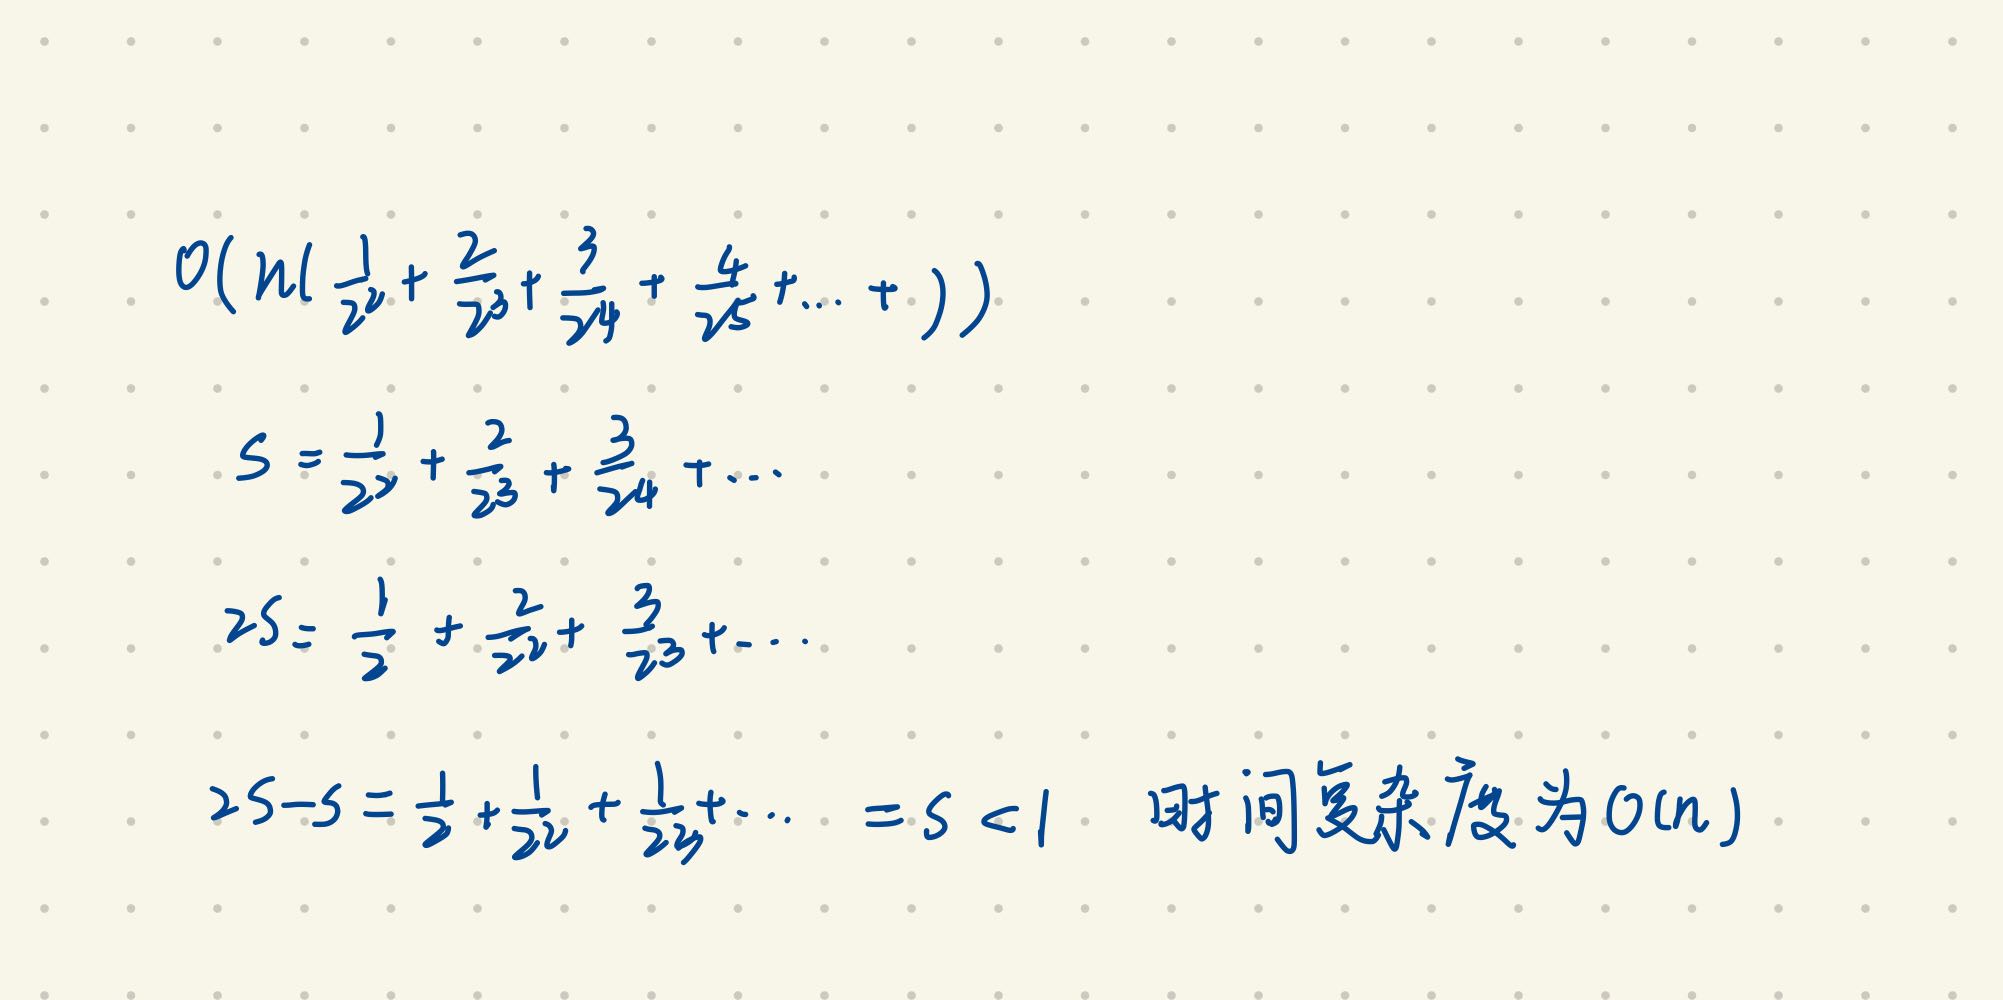 O(n(1/2² + 2/2³ + 3/2⁴ + 4/2⁵ + ... + ))
S = 1/2² + 2/2³ + 3/2⁴ + ...
2S = 1/2 + 2/2² + 3/2³ + ...
2S-S = 1/2 + 1/2² + 1/2³ + ... = S < 1 时间复杂度为O(n)